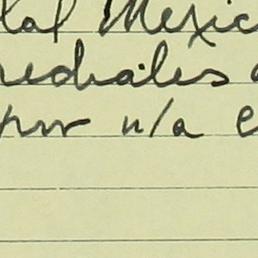 tal Mexic
rediales
por n/a